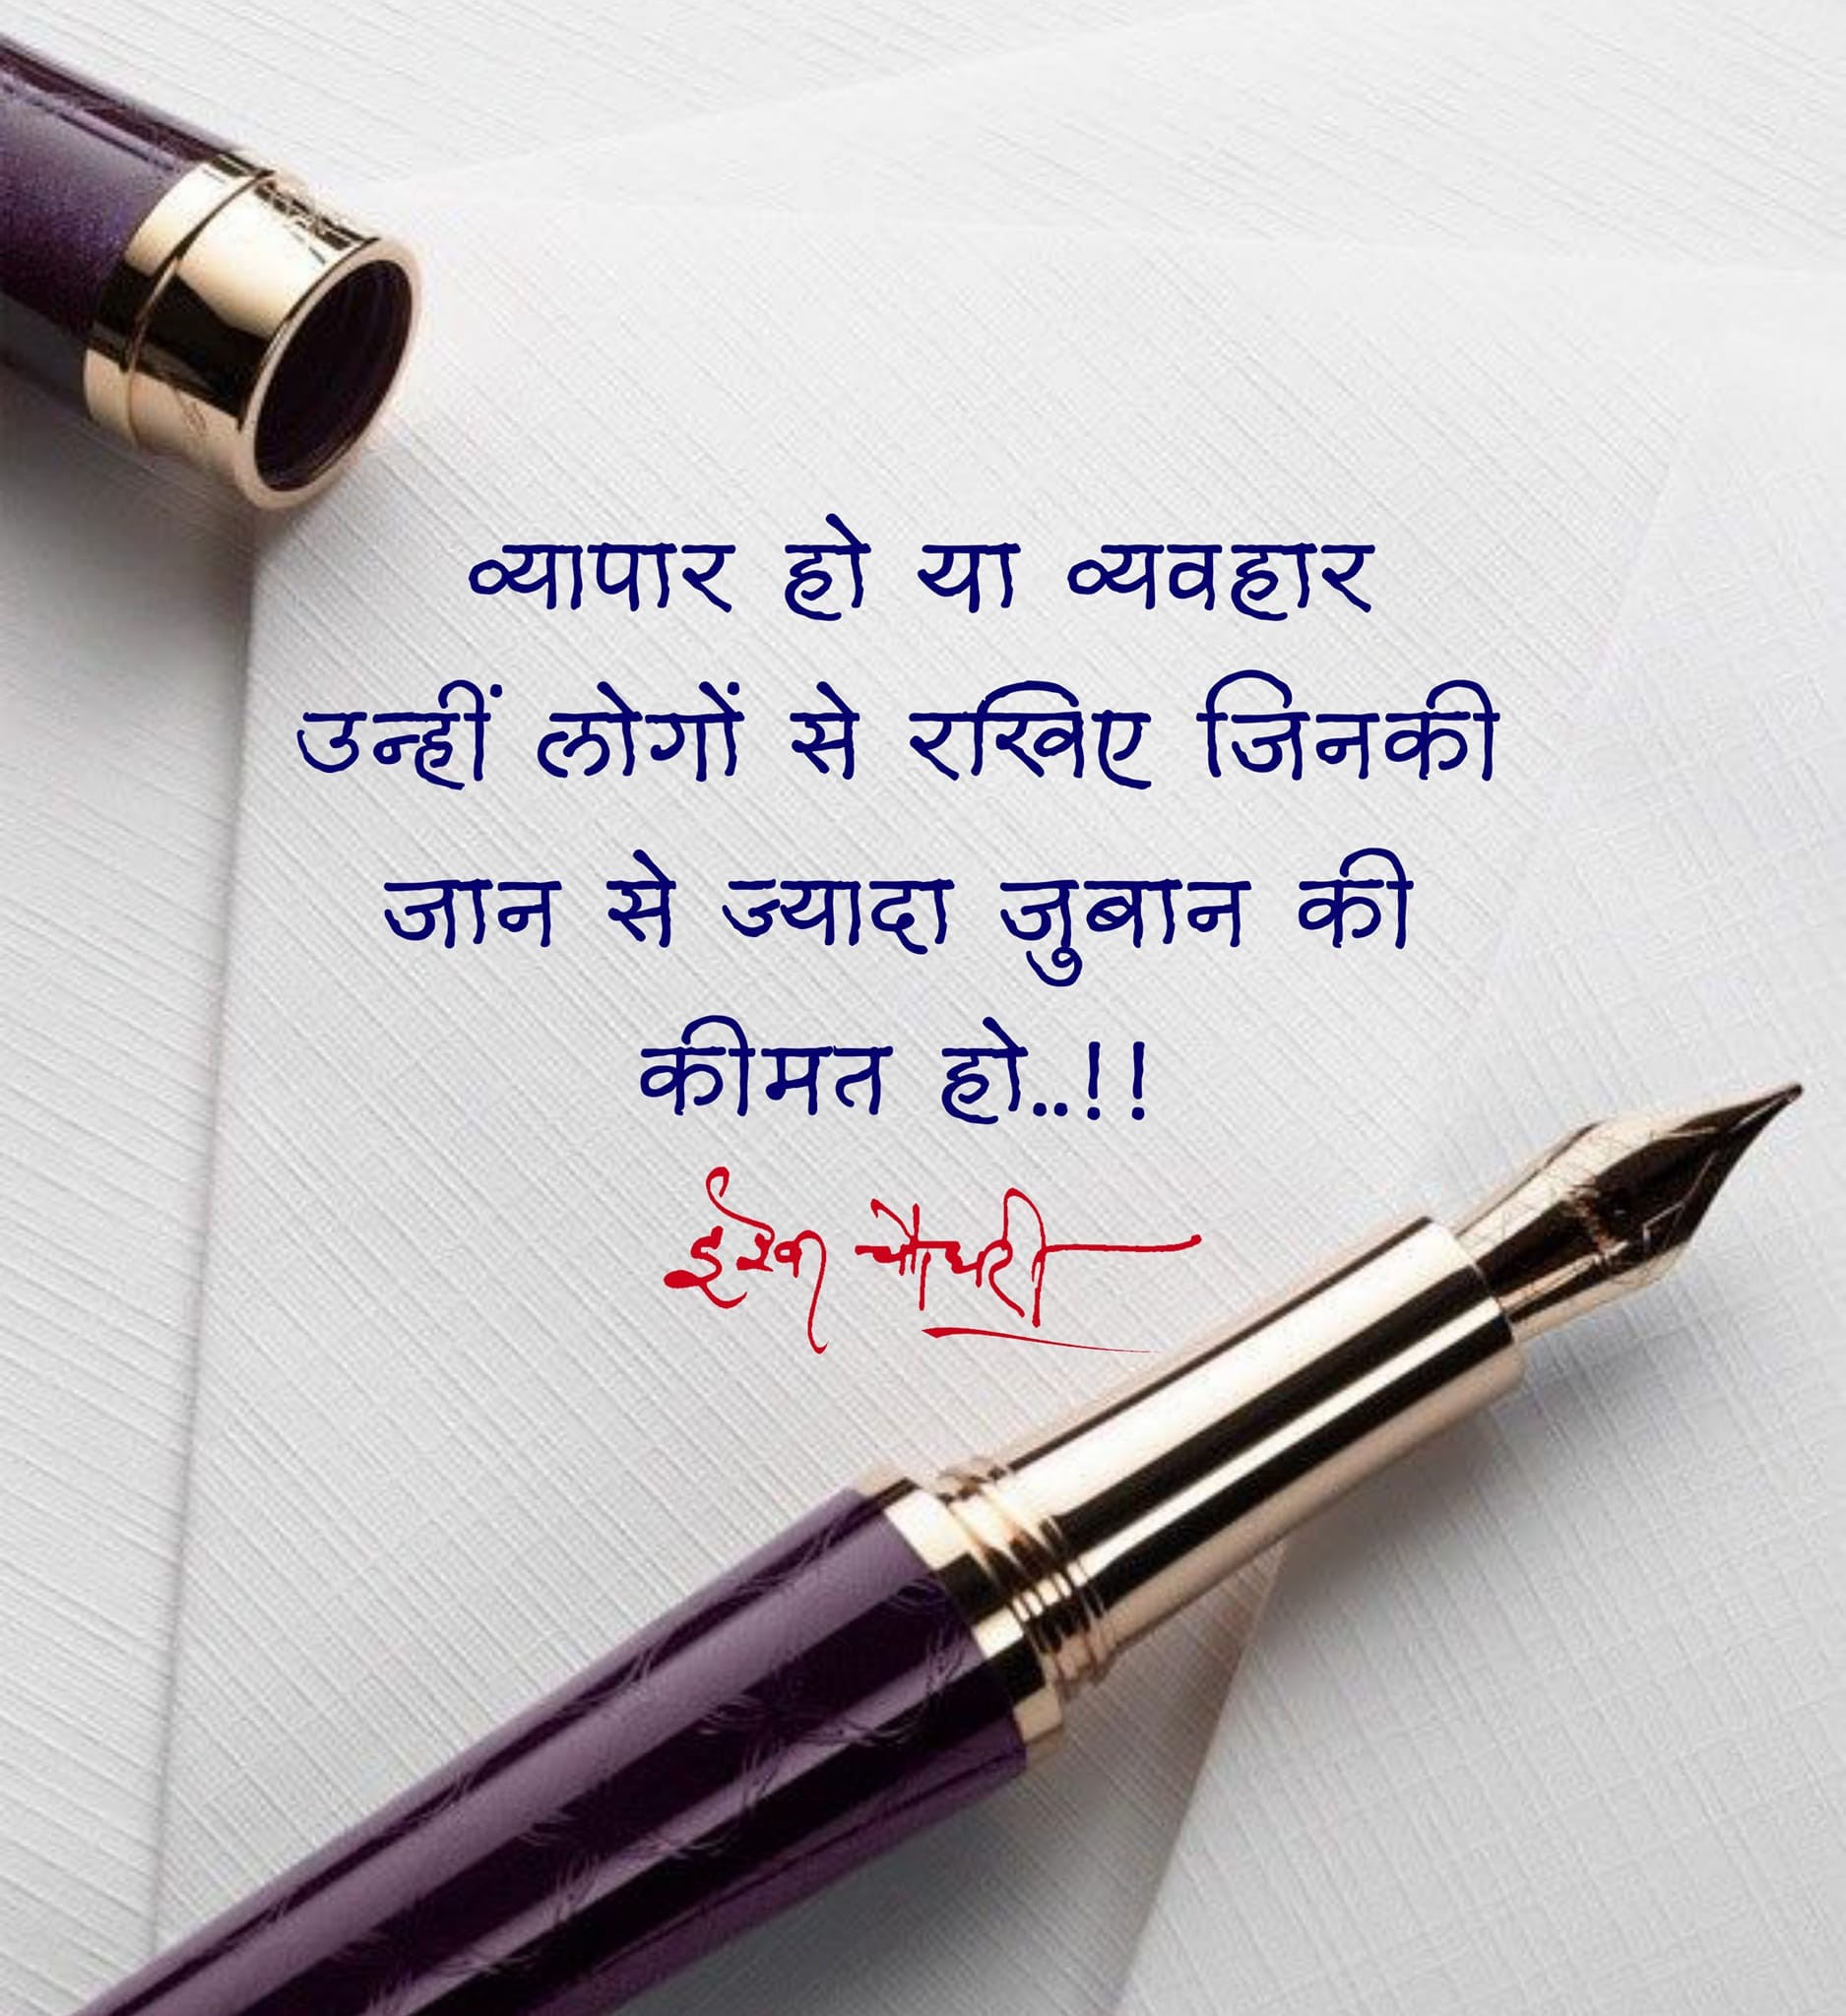 व्यापार हो या व्यवहार
उन्हीं लोगों से रखिए जिनकी
जान से ज्यादा जुबान की
कीमत हो..!!
चौधरी